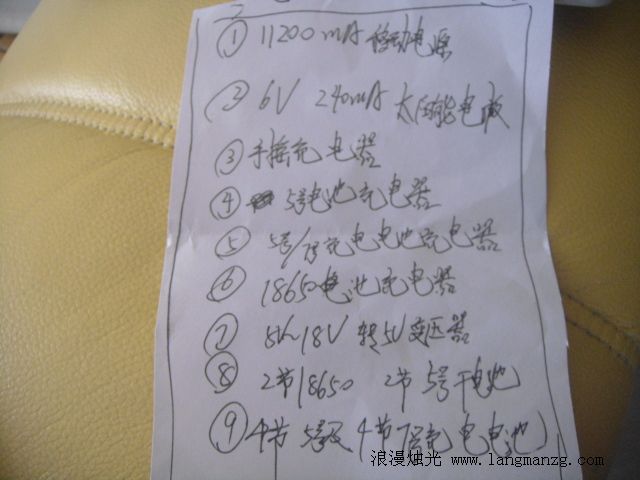 ① 11200mA 移动电源
② 6V 240mA 太阳能电板
③ 手摇充电器
④ 5号电池充电器
⑤ 5号/7号充电电池充电器
⑥ 18650电池充电器
⑦ 18V 转5V变压器
⑧ 2节18650 2节5号干电池
⑨ 4节5号及4节7号充电电池
浪漫烛光 www.langmanzg.com